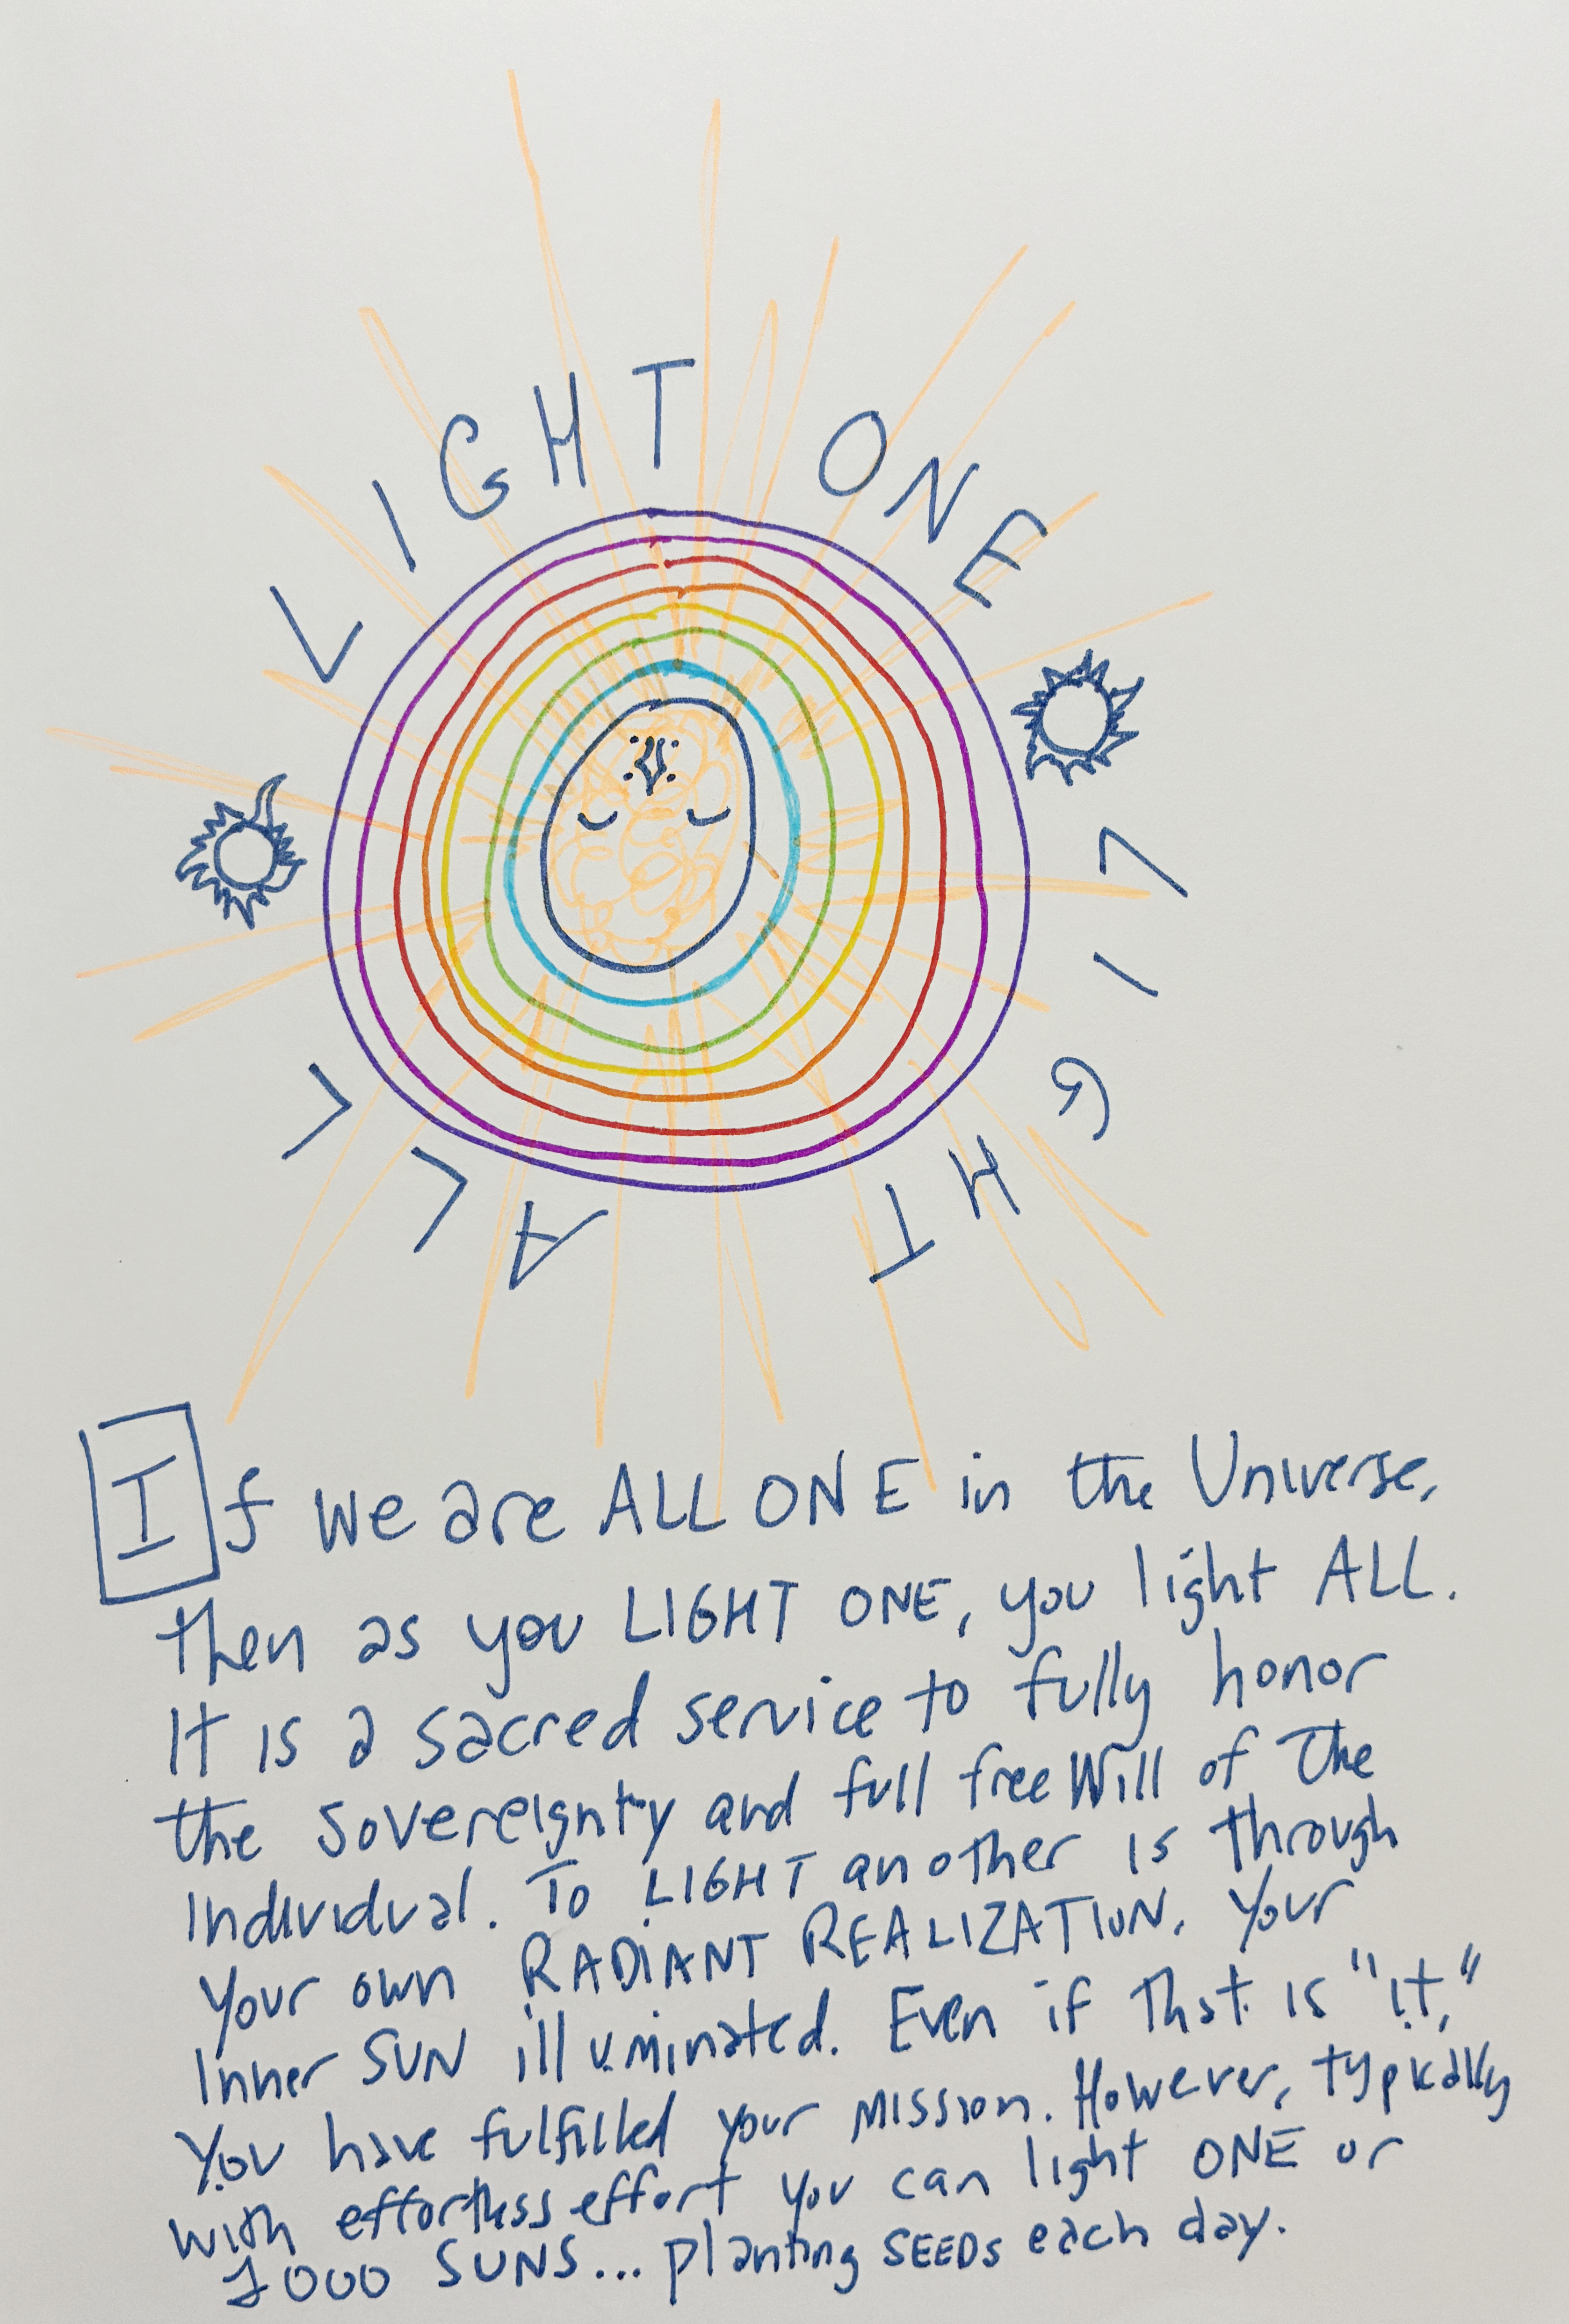 LIGHT ONE
LIGHT ALL
If we are ALL ONE in the Universe,
then as you LIGHT ONE, you light ALL.
It is a sacred service to fully honor
the sovereignty and full free Will of the
individual. To LIGHT another is through
your own RADIANT REALIZATION. Your
inner SUN illuminated. Even if that is "it,"
you have fulfilled your mission. However, typically
with effortless effort you can light ONE or
1000 SUNS... planting SEEDS each day.